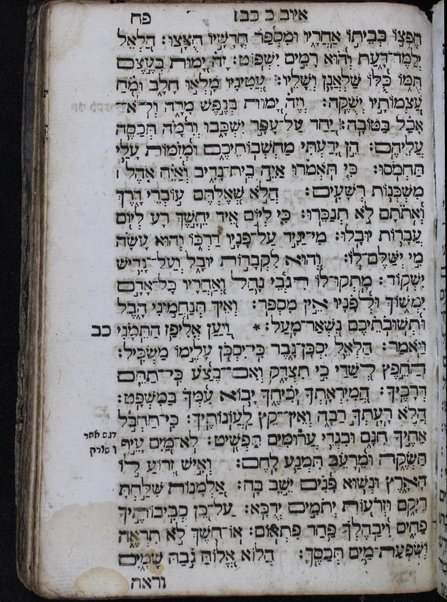 איוב כ כבו פח
חפצו בביתו אחריו ומספר חדשיו חצצו: הלאל
ילמד־דעת והוא רמים ישפוט: זה ימות בעצם
תמו כלו שלאנן ושליו: עטיניו מלאו חלב ומח
עצמותיו ישקה: וזה ימות בנפש מרה ולא־
אכל בטובה: יחד על־עפר ישכבו ורמה תכסה
עליהם: הן ידעתי מחשבותיכם ומזמות עלי
תחמסו: כי תאמרו איה בית־נדיב ואיה אהל
משכנות רשעים: הלא שאלתם עוברי דרך
ואתתם לא תנכרו: כי ליום איד יחשך רע ליום
עברות יובלו: מי־יגיד על־פניו דרכו והוא עשה
מי ישלם־לו: והוא לקברות יובל ועל־גדיש
ישקוד: מתקו־לו רגבי נחל ואחריו כל־אדם
ימשוך ולפניו אין מספר: ואיך תנחמוני הבל
ותשובתיכם נשאר־מעל: * ויען אליפז התמני כב
ויאמר: הלאל יסכן־גבר כי־יסכן עלימו משכיל:
החפץ לשדי כי תצדק ואם־בצע כי־תתם
דרכיך: המיראתך יוכיחך יבוא עמך במשפט:
הלא רעתך רבה ואין־קץ לעונותיך: כי־תחבל
אחיך חנם ובגדי ערומים תפשיט: לא־מים עיף
תשקה ומרעב תמנע לחם: ואיש זרוע לו
הארץ ונשוא פנים ישב בה: אלמנות שלחת
ריקם וזרעות יתמים ידכא: על־כן סביבותיך
פחים ויבהלך פחד פתאום: או־חשך לא תראה
ושפעת־מים תכסך: הלוא אלוה גבה שמים
וראה